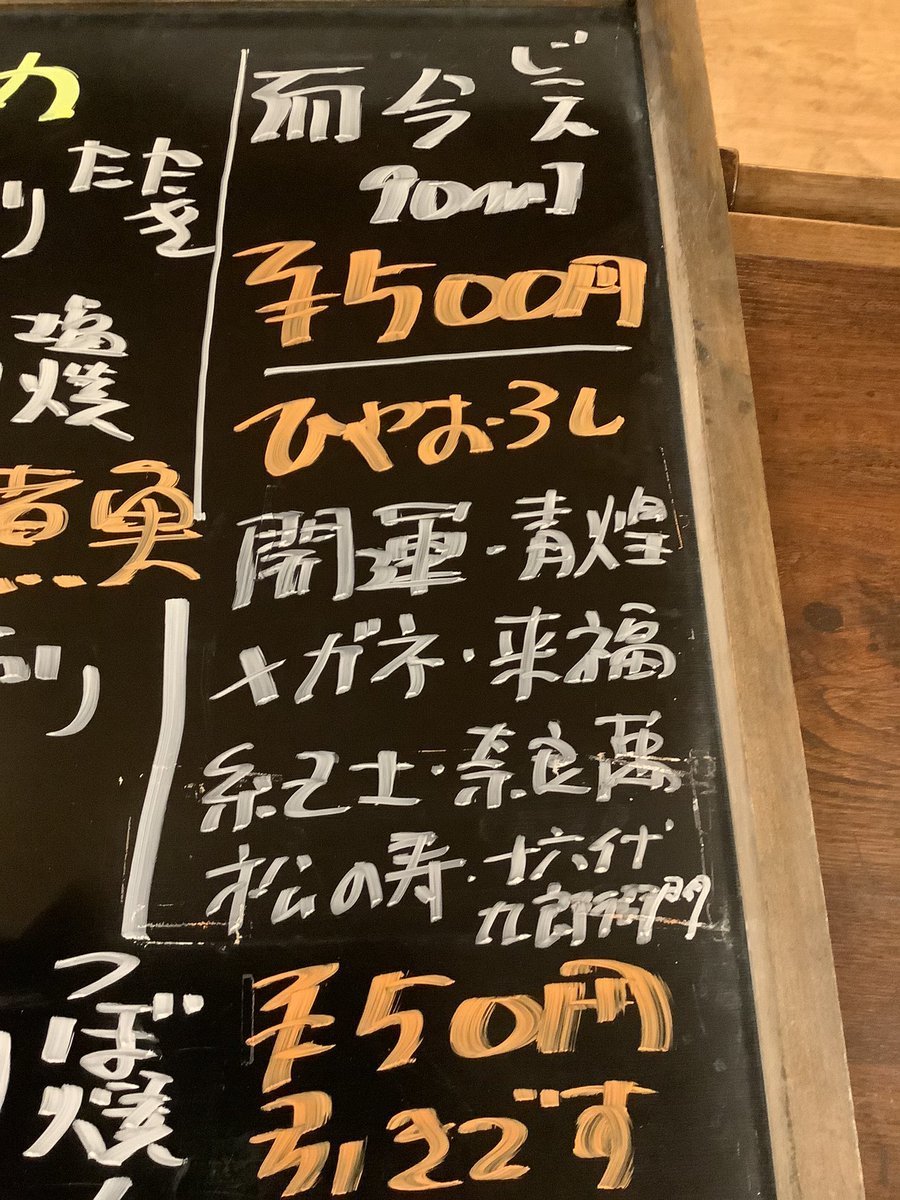 而今 じこん
90ml
¥500円
ひやおろし
開運・青煌
メガネ・来福
紀土・奈良萬
松の寿・十六代
九郎衛門
¥50円
引きです
カ
たたき
り
塩
焼
煮魚
り
つぼ
焼